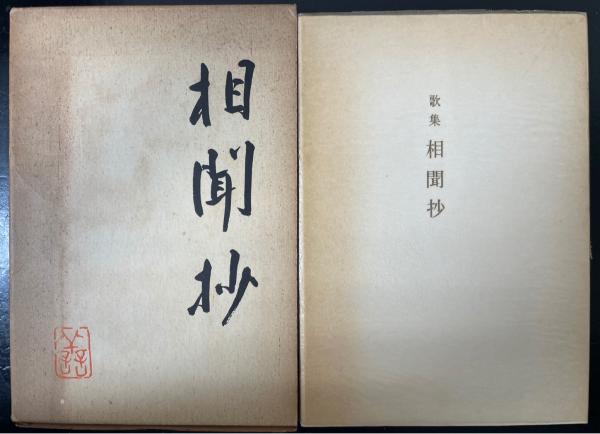 相聞抄
歌集 相聞抄